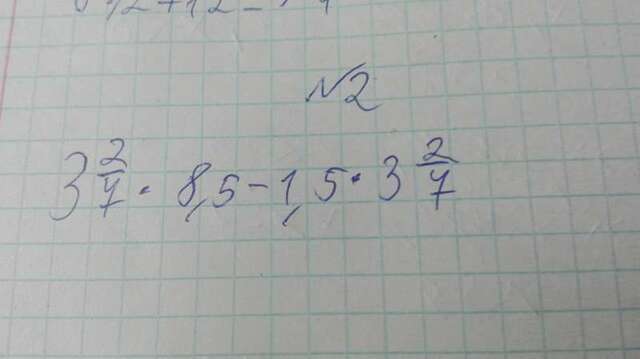 №2
3 2/7 · 8,5 - 1,5 · 3 2/7